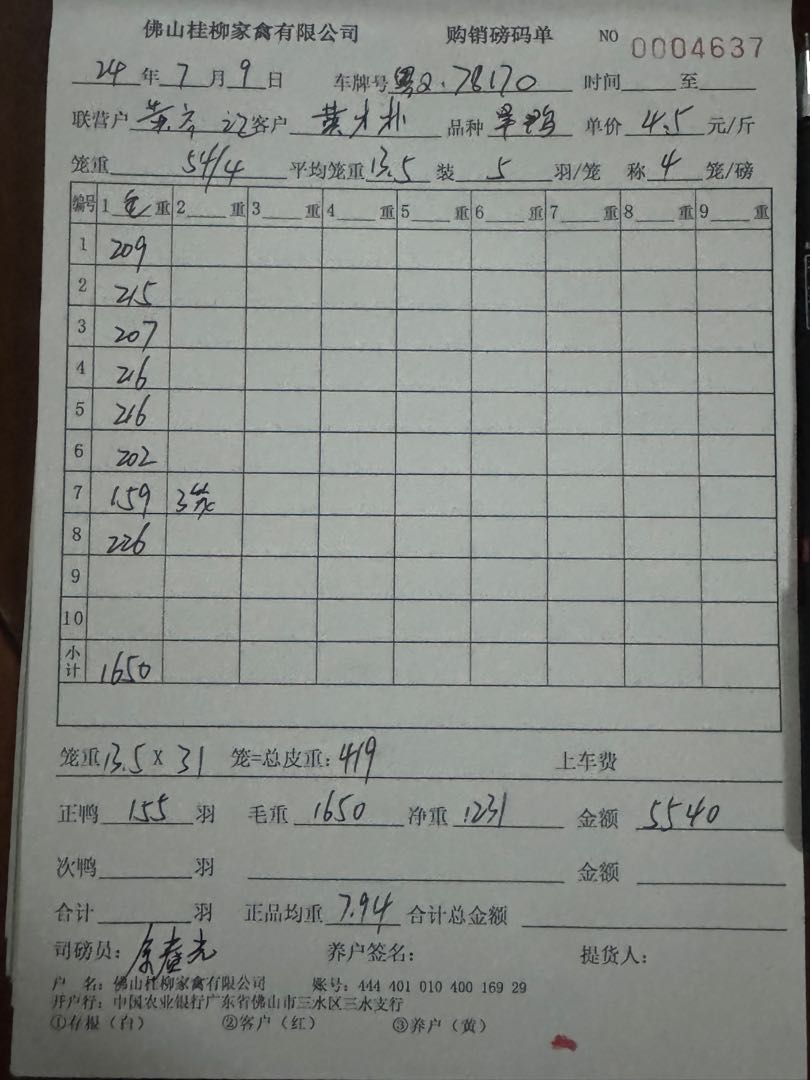 佛山桂柳家禽有限公司 购销磅码单 NO 0004637
24年7月9日 车牌号粤Q·78170 时间 至
联营户 客户 黄才朴 品种 单价4.5元/斤
笼重 54/4 平均笼重13.5 装 5 羽/笼 称 4 笼/磅
编号 1 毛 重 2 重 3 重 4 重 5 重 6 重 7 重 8 重 9 重
1 209
2 215
3 207
4 216
5 216
6 202
7 159 3笼
8 226
9
10
小计 1650
笼重13.5 X 31 笼=总皮重：419 上车费
正鸭 155 羽 毛重 1650 净重 1231 金额 5540
次鸭 羽 金额
合计 羽 正品均重 7.94 合计总金额
司磅员： 养户签名： 提货人：
户 名：佛山桂柳家禽有限公司 账号：444 401 010 400 169 29
开户行：中国农业银行广东省佛山市三水区三水支行
①存报（白） ②客户（红） ③养户（黄）